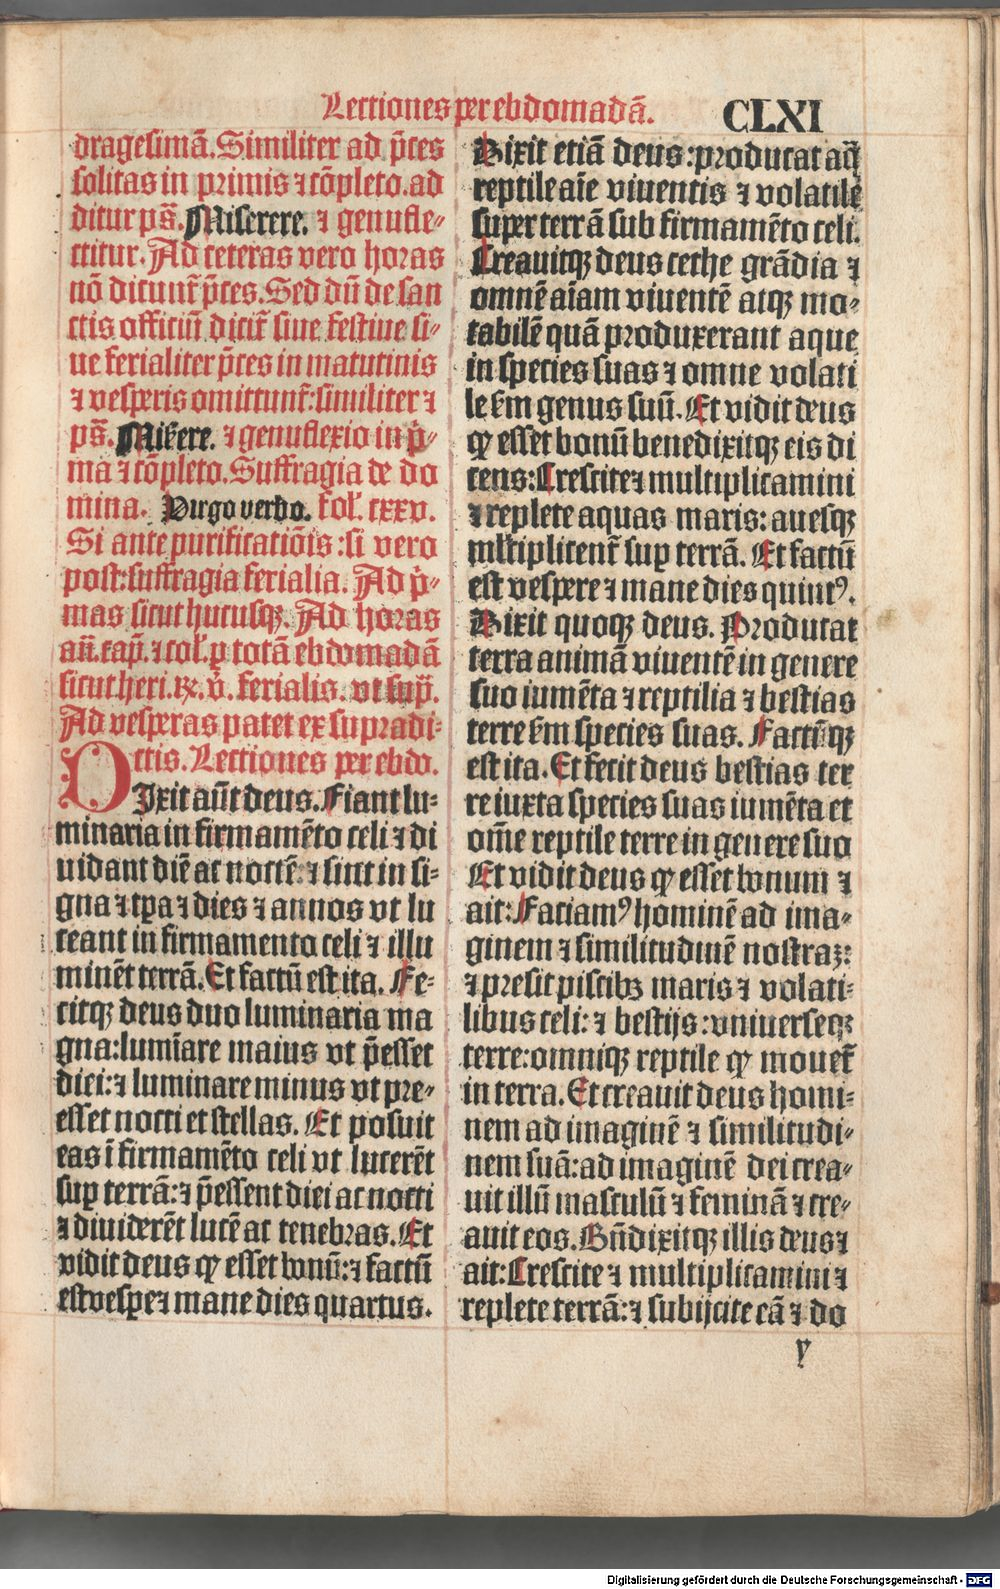 Lectiones per ebdomadā.
CLXI
dragesimā. Similiter ad p̄ces
solitas in primis ⁊ cōpleto. ad
ditur ps̄. Miserere. ⁊ genufle⸗
ctitur. Ad ceteras vero horas
nō dicunt᷑ p̄ces. Sed dū de san
ctis officiū dicit᷑ siue festiue si⸗
ue ferialiter p̄ces in matutinis
⁊ vesperis omittunt᷑: similiter ⁊
ps̄. Mis̄ere. ⁊ genuflexio in p̄⸗
ma ⁊ cōpleto. Suffragia de do
mina. Virgo verbo. fol. cxxv.
Si ante purificatiōis: si vero
post: suffragia ferialia. Ad p̄⸗
mas sicut hucusqꝫ. Ad horas
añ. cap̄. ⁊ col. ꝑ totā ebdomadā
sicut heri. ℞. v̄. ferialis. vt sup̄.
Ad vesperas patet ex supradi⸗
ctis. Lectiones per ebdo.
DIxit aūt deus. Fiant lu⸗
minaria in firmamēto celi ⁊ di
uidant diē ac noctē: ⁊ sint in si⸗
gna ⁊ tꝑa ⁊ dies ⁊ annos vt lu
ceant in firmamento celi ⁊ illu
minēt terrā. Et factū est ita. Fe⸗
citqꝫ deus duo luminaria ma
gna: lumīare maius vt p̄esset
diei: ⁊ luminare minus vt pre⸗
esset nocti et stellas. Et posuit
eas ī firmamēto celi vt lucerēt
suꝑ terrā: ⁊ p̄essent diei ac nocti
⁊ diuiderēt lucē ac tenebras. Et
vidit deus ꝙ esset bonū: ⁊ factū
est vespe ⁊ mane dies quartus.
Dixit etiā deus: producat aq̄
reptile aīe viuentis ⁊ volatile
super terrā sub firmamēto celi.
Creauitqꝫ deus cethe grādia ⁊
omnē aīam viuentē atqꝫ mo⸗
tabilē quā produxerant aque
in species suas ⁊ omne volati
le s̄m genus suū. Et vidit deus
ꝙ esset bonū benedixitqꝫ eis di
cens: Crescite ⁊ multiplicamini
⁊ replete aquas maris: auesqꝫ
ml̄tiplicent᷑ suꝑ terrā. Et factū
est vespere ⁊ mane dies quintꝰ.
Dixit quoqꝫ deus. Producat
terra animā viuentē in genere
suo iumēta ⁊ reptilia ⁊ bestias
terre s̄m species suas. Factūqꝫ
est ita. Et fecit deus bestias ter
re iuxta species suas iumēta et
om̄e reptile terre in genere suo
Et vidit deus ꝙ esset bonum ⁊
ait: Faciamꝰ hominē ad ima⸗
ginem ⁊ similitudinē nostraꝫ:
⁊ presit piscibꝫ maris ⁊ volati⸗
libus celi: ⁊ bestijs: vniuerseqꝫ
terre: omniqꝫ reptile ꝙ mouet᷑
in terra. Et creauit deus homi⸗
nem ad imaginē ⁊ similitudi⸗
nem suā: ad imaginē dei crea⸗
uit illū masculū ⁊ feminā ⁊ cre⸗
auit eos. Bn̄dixitqꝫ illis deus ⁊
ait: Crescite ⁊ multiplicamini ⁊
replete terrā: ⁊ subijcite eā ⁊ do
y
Digitalisierung gefördert durch die Deutsche Forschungsgemeinschaft - DFG